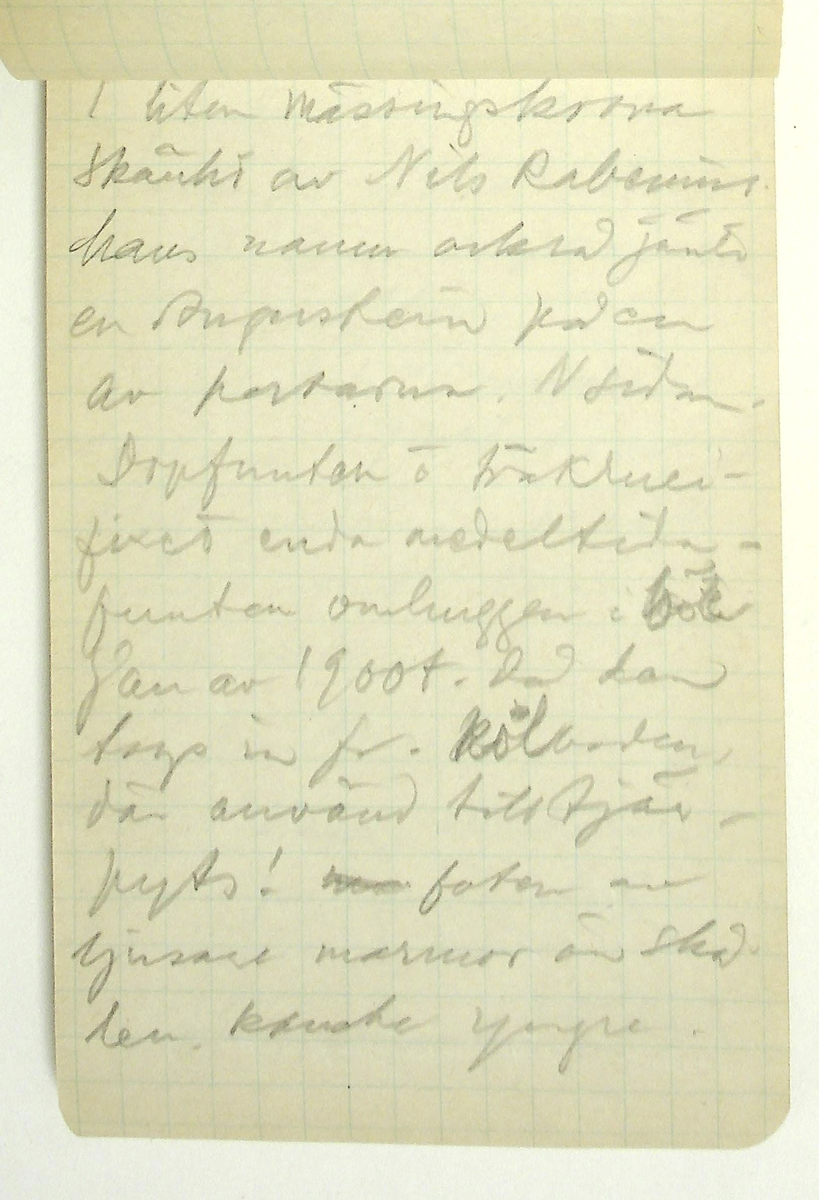 1 liten mässingskrona
skänkt av Nils Rabenius.
hans namn också jämte
en på en
av portarna. N sidan.
Dopfunten o träkruci-
fixet enda medeltida -
funten omhuggen i bör
jan av 1900t. Då den
togs in fr. kölboden,
där använd till tjär-
pyts! foten av
ljusare marmor än skå-
len. Kanske yngre.